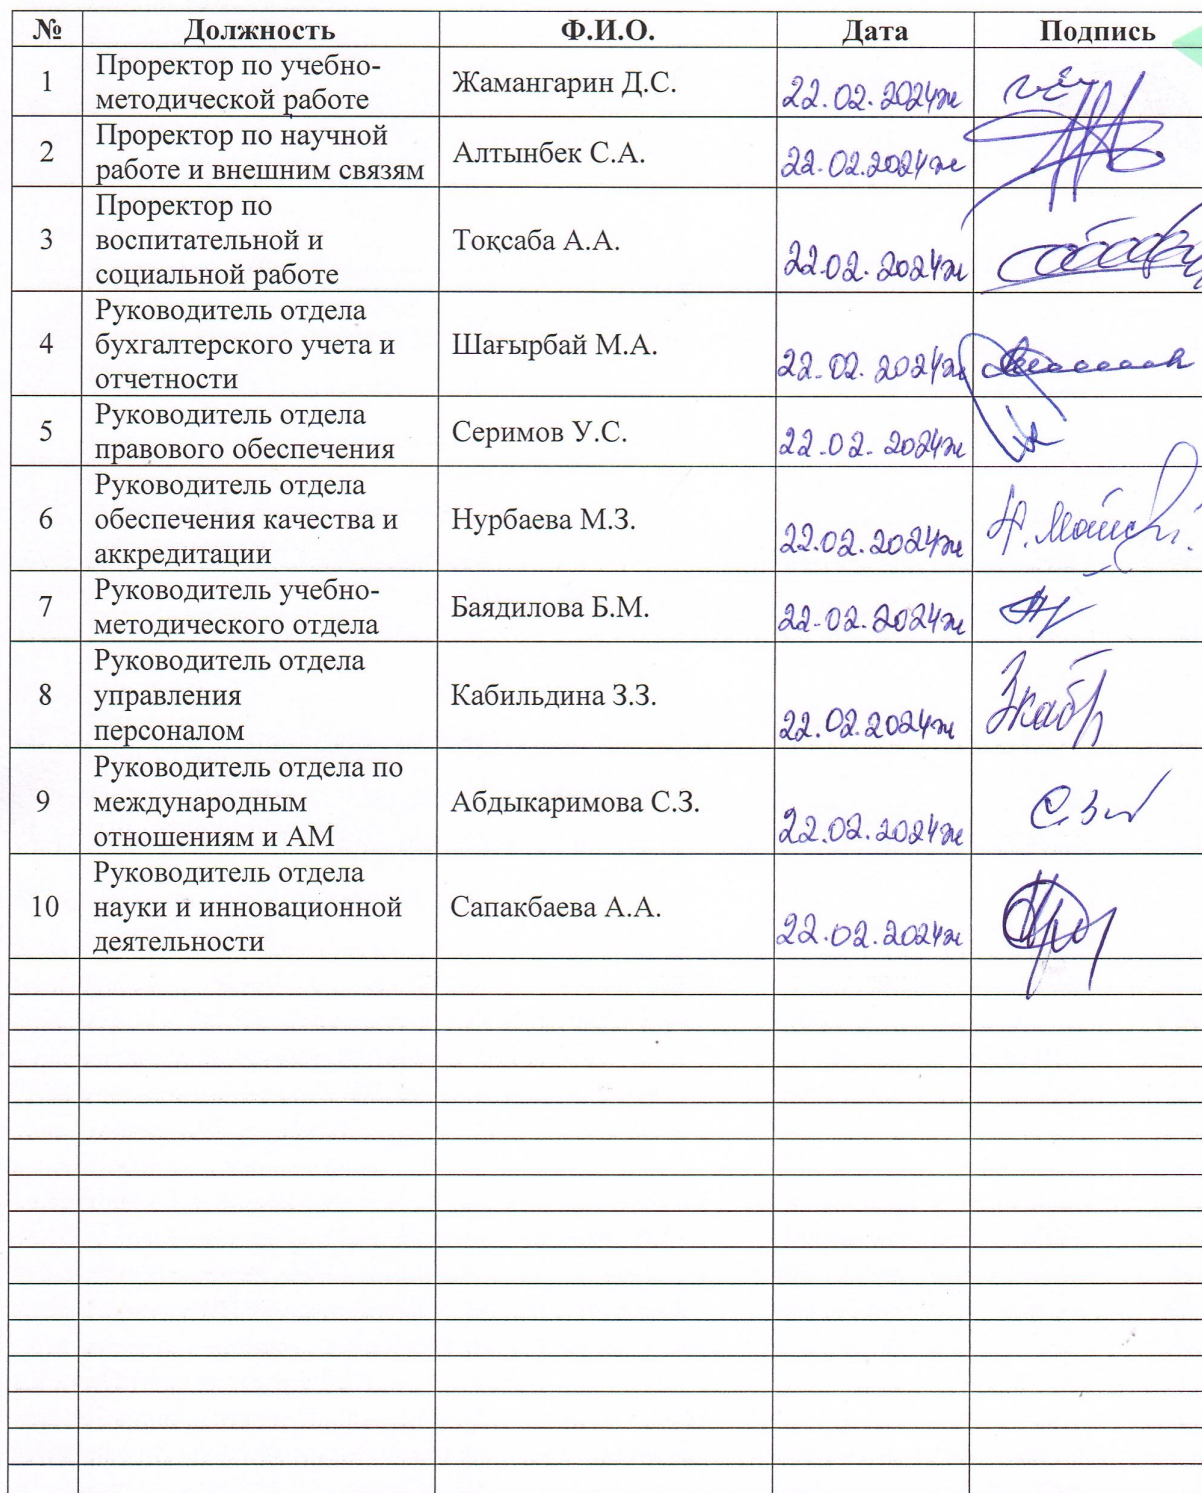 № Должность Ф.И.О. Дата Подпись
1 Проректор по учебно-
методической работе Жамангарин Д.С. 22.02.2024ж
2 Проректор по научной
работе и внешним связям Алтынбек С.А. 22.02.2024ж
3 Проректор по
воспитательной и
социальной работе Тоқсаба А.А. 22.02.2024ж
4 Руководитель отдела
бухгалтерского учета и
отчетности Шағырбай М.А. 22.02.2024ж
5 Руководитель отдела
правового обеспечения Серимов У.С. 22.02.2024ж
6 Руководитель отдела
обеспечения качества и
аккредитации Нурбаева М.З. 22.02.2024ж
7 Руководитель учебно-
методического отдела Баядилова Б.М. 22.02.2024ж
8 Руководитель отдела
управления
персоналом Кабильдина З.З. 22.02.2024ж
9 Руководитель отдела по
международным
отношениям и АМ Абдыкаримова С.З. 22.02.2024ж
10 Руководитель отдела
науки и инновационной
деятельности Сапакбаева А.А. 22.02.2024ж